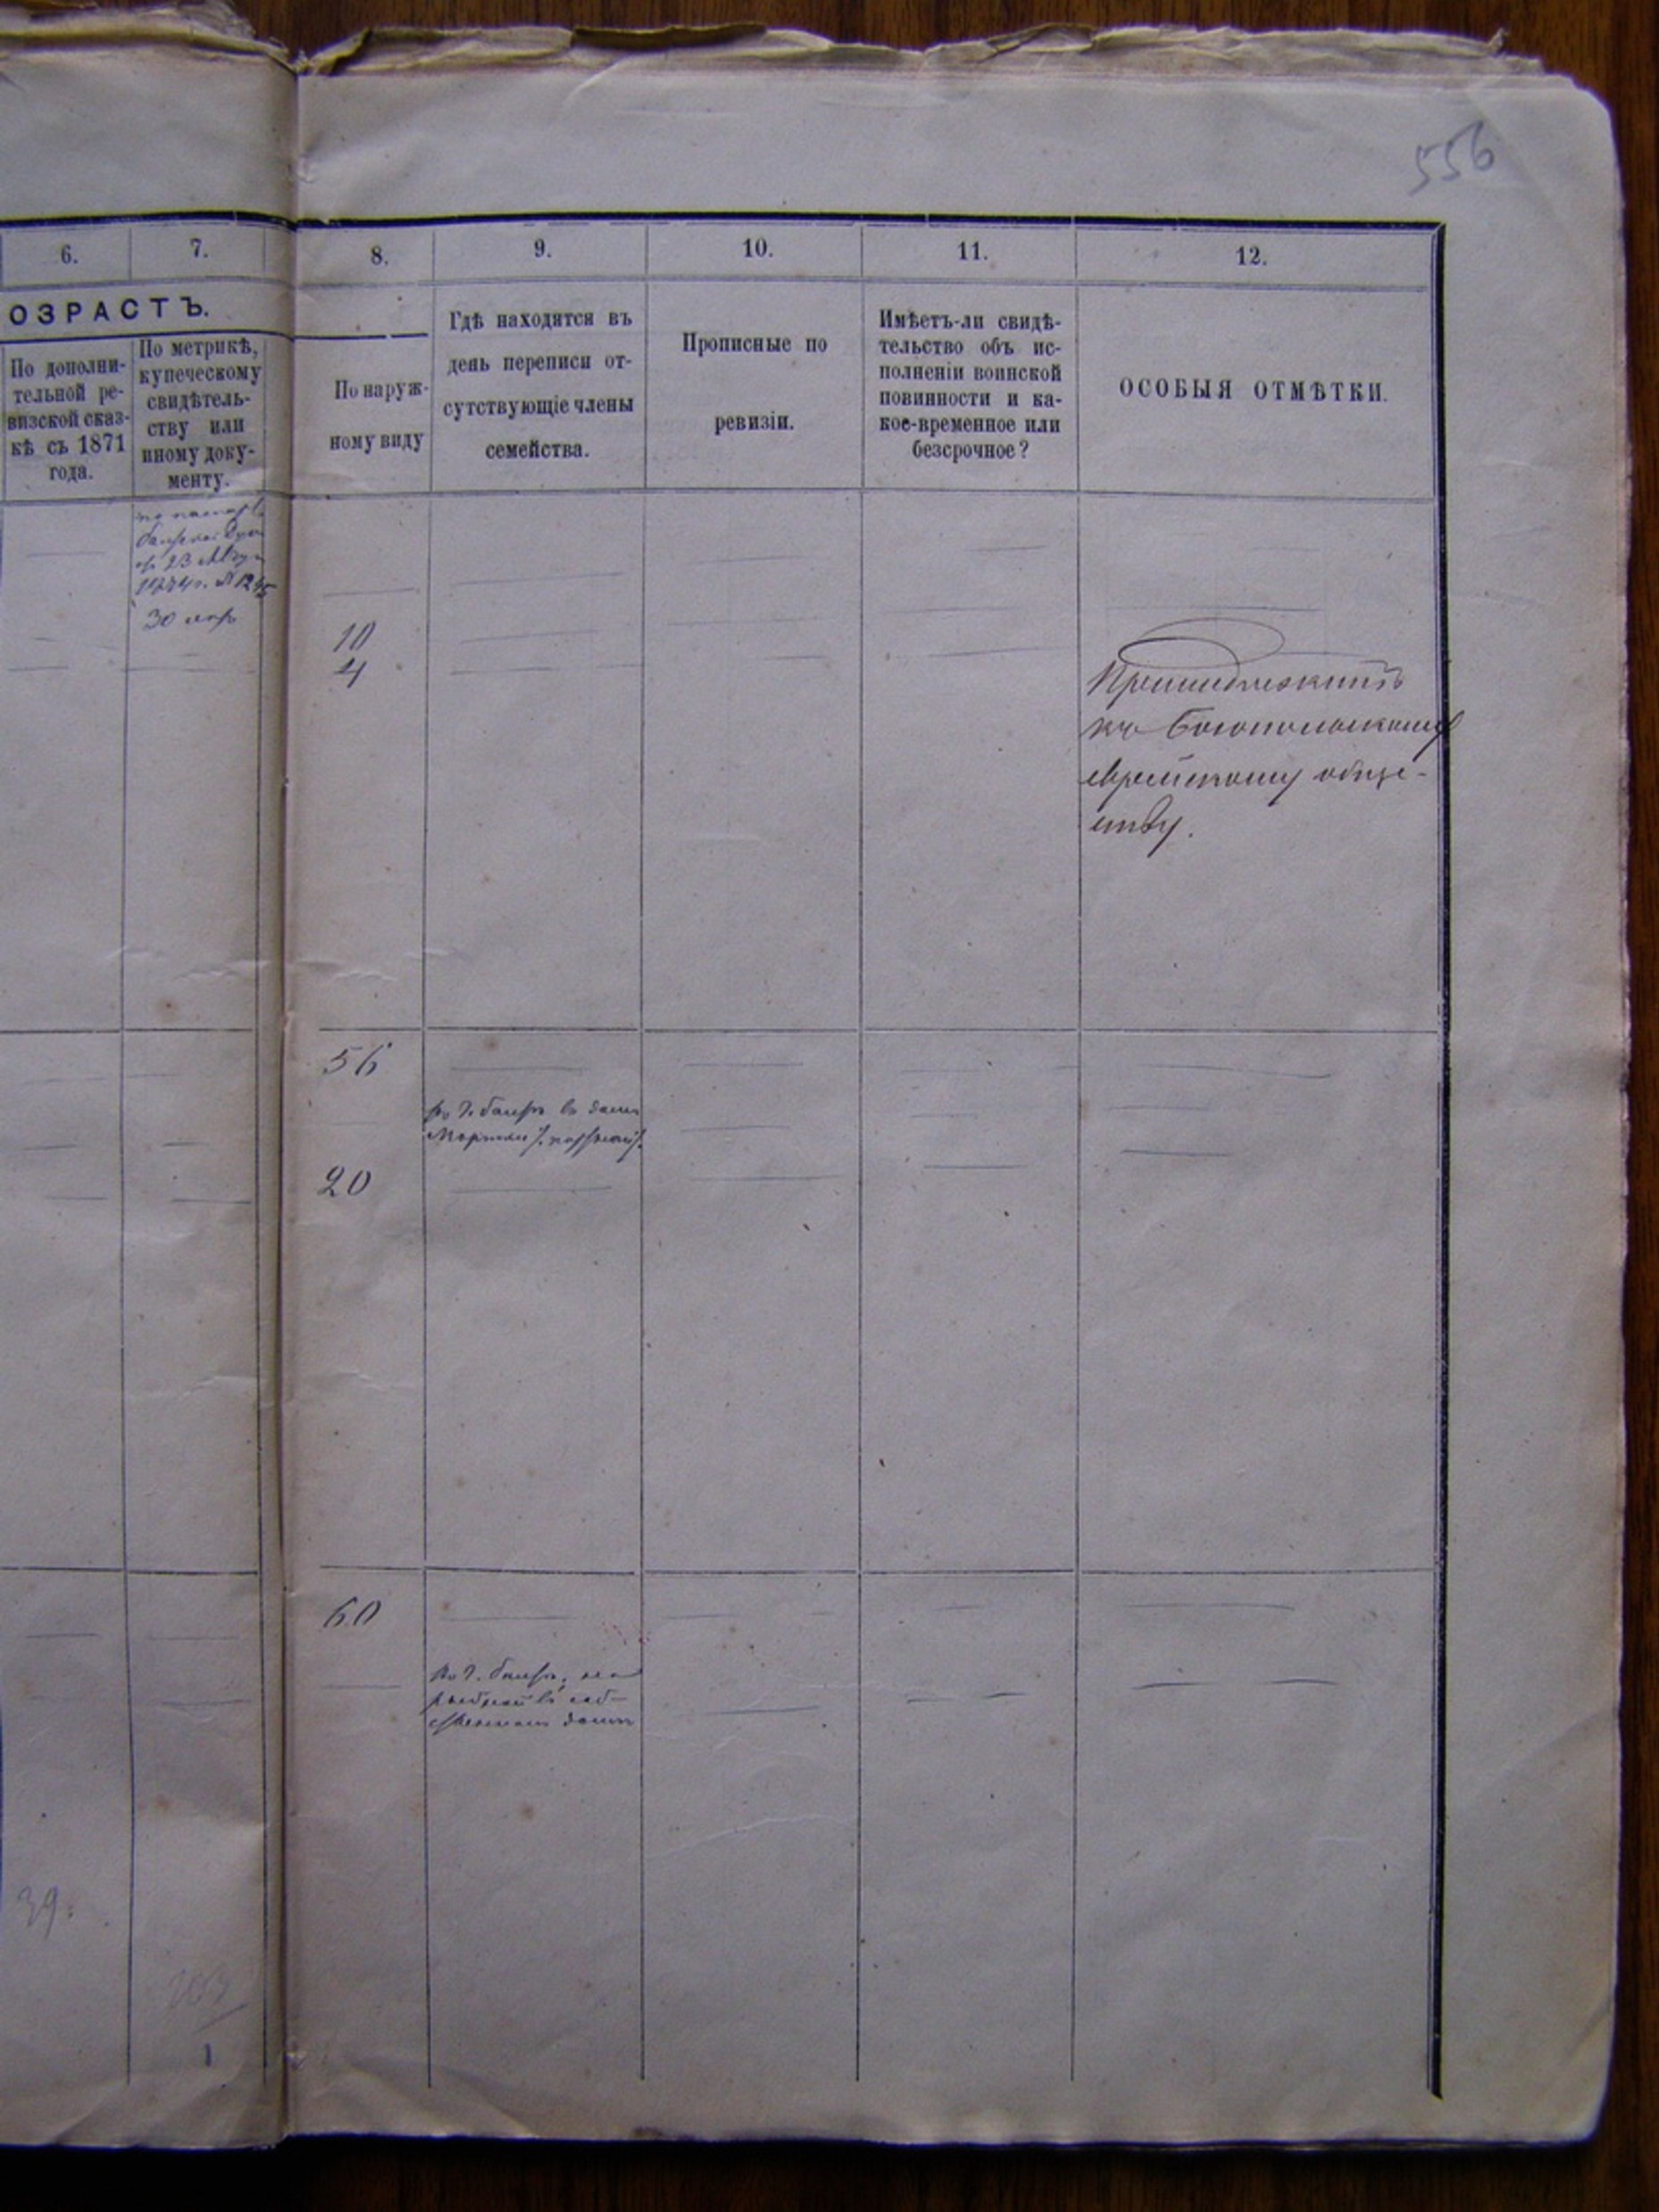 556
6. 7. 8. 9. 10. 11. 12.
ОЗРАСТЪ.
По дополни-
тельной ре-
визской сказ-
кѣ съ 1871
года.
По метрикѣ,
купеческому
свидѣтель-
ству или
иному доку-
менту.
По наруж-
ному виду
Гдѣ находятся въ
день переписи от-
сутствующіе члены
семейства.
Прописные по
ревизіи.
Имѣетъ-ли свидѣ-
тельство объ ис-
полненіи воинской
повинности и ка-
кое-временное или
безсрочное?
ОСОБЫЯ ОТМѢТКИ.
30
10
4
Принадлежитъ
къ
еврейскому обще-
ству.
56
въ домѣ
20
60
соб-
ственномъ домѣ
39.